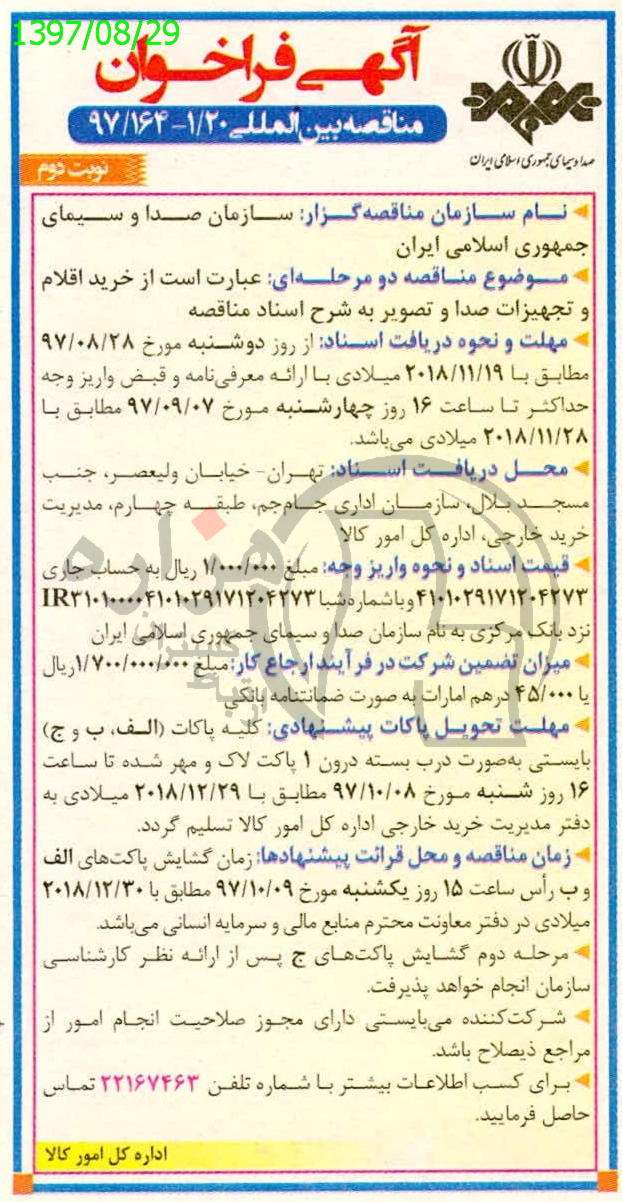 1397/08/29
آگهی فراخوان
مناقصه بین‌المللی ۱/۲۰-۹۷/۱۶۴
صدا و سیمای جمهوری اسلامی ایران
نوبت دوم
نام سازمان مناقصه‌گزار: سازمان صدا و سیمای
جمهوری اسلامی ایران
موضوع مناقصه دو مرحله‌ای: عبارت است از خرید اقلام
و تجهیزات صدا و تصویر به شرح اسناد مناقصه
مهلت و نحوه دریافت اسناد: از روز دوشنبه مورخ ۹۷/۰۸/۲۸
مطابق با ۲۰۱۸/۱۱/۱۹ میلادی با ارائه معرفی‌نامه و قبض واریز وجه
حداکثر تا ساعت ۱۶ روز چهارشنبه مورخ ۹۷/۰۹/۰۷ مطابق با
۲۰۱۸/۱۱/۲۸ میلادی می‌باشد.
محل دریافت اسناد: تهران- خیابان ولیعصر، جنب
مسجد بلال، سازمان اداری جام‌جم، طبقه چهارم، مدیریت
خرید خارجی، اداره کل امور کالا
قیمت اسناد و نحوه واریز وجه: مبلغ ۱/۰۰۰/۰۰۰ ریال به حساب جاری
۴۱۰۱۰۲۹۱۷۱۲۰۴۲۷۳ و با شماره شبا IR۳۱۰۱۰۰۰۰۴۱۰۱۰۲۹۱۷۱۲۰۴۲۷۳
نزد بانک مرکزی به نام سازمان صدا و سیمای جمهوری اسلامی ایران
میزان تضمین شرکت در فرآیند ارجاع کار: مبلغ ۱/۷۰۰/۰۰۰/۰۰۰ ریال
یا ۴۵/۰۰۰ درهم امارات به صورت ضمانتنامه بانکی
مهلت تحویل پاکات پیشنهادی: کلیه پاکات (الف، ب و ج)
بایستی به‌صورت درب بسته درون ۱ پاکت لاک و مهر شده تا ساعت
۱۶ روز شنبه مورخ ۹۷/۱۰/۰۸ مطابق با ۲۰۱۸/۱۲/۲۹ میلادی به
دفتر مدیریت خرید خارجی اداره کل امور کالا تسلیم گردد.
زمان مناقصه و محل قرائت پیشنهادها: زمان گشایش پاکت‌های الف
و ب رأس ساعت ۱۵ روز یکشنبه مورخ ۹۷/۱۰/۰۹ مطابق با ۲۰۱۸/۱۲/۳۰
میلادی در دفتر معاونت محترم منابع مالی و سرمایه انسانی می‌باشد.
مرحله دوم گشایش پاکت‌های ج پس از ارائه نظر کارشناسی
سازمان انجام خواهد پذیرفت.
شرکت‌کننده می‌بایستی دارای مجوز صلاحیت انجام امور از
مراجع ذیصلاح باشد.
برای کسب اطلاعات بیشتر با شماره تلفن ۲۲۱۶۷۴۶۳ تماس
حاصل فرمایید.
اداره کل امور کالا
هزاره